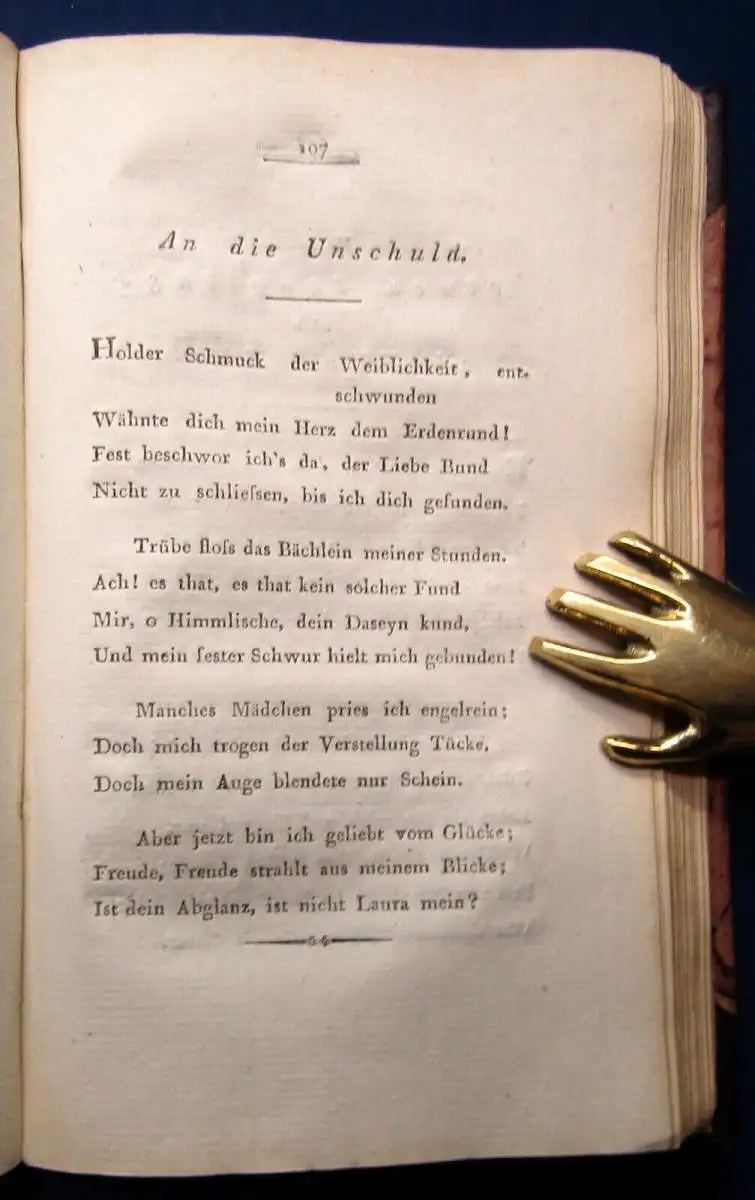 107
An die Unschuld.
Holder Schmuck der Weiblichkeit, ent-
schwunden
Wähnte dich mein Herz dem Erdenrund!
Fest beschwor ich's da, der Liebe Bund
Nicht zu schlieſsen, bis ich dich gefunden.
Trübe floſs das Bächlein meiner Stunden.
Ach! es that, es that kein solcher Fund
Mir, o Himmlische, dein Daseyn kund,
Und mein fester Schwur hielt mich gebunden!
Manches Mädchen pries ich engelrein;
Doch mich trogen der Verstellung Tücke,
Doch mein Auge blendete nur Schein.
Aber jetzt bin ich geliebt vom Glücke;
Freude, Freude strahlt aus meinem Blicke;
Ist dein Abglanz, ist nicht Laura mein?